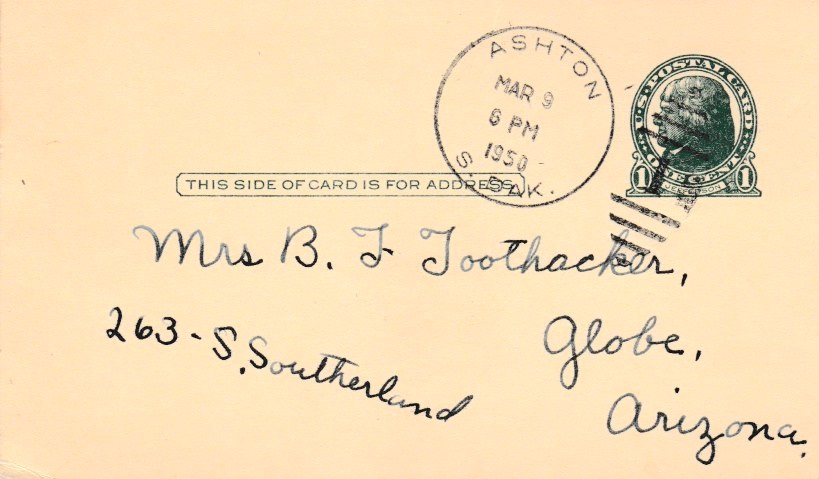 ASHTON
MAR 9
6 PM
1950
S. DAK.
U.S. POSTAL CARD
ONE CENT
1 JEFFERSON 1
THIS SIDE OF CARD IS FOR ADDRESS
Mrs B. F Toothacker,
263 - S. Southerland
Globe,
Arizona.